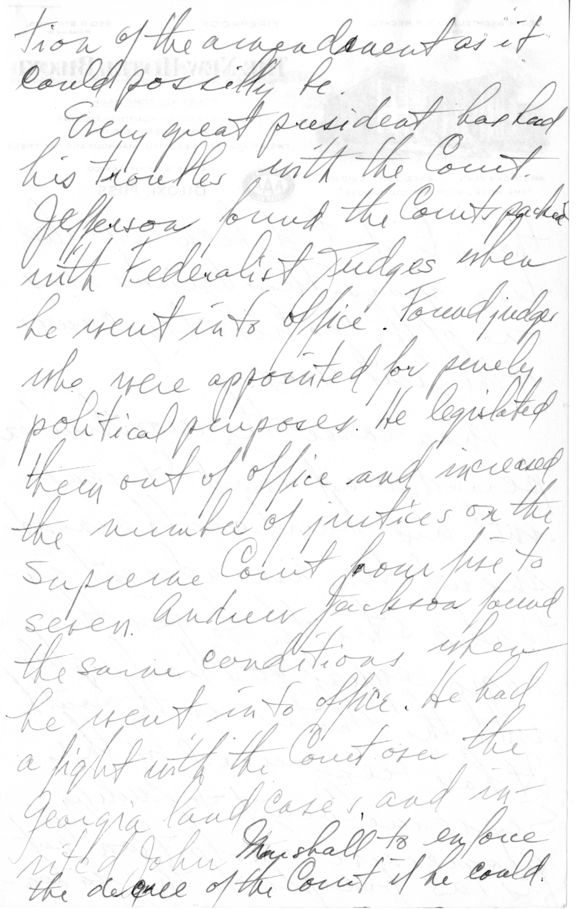 tion of the amendment as it
could possibly be.
Every great president has had
his troubles with the Court.
Jefferson found the Courts packed
with Federalist Judges when
he went into office. Found judges
who were appointed for purely
political purposes. He legislated
them out of office and increased
the number of justices on the
Supreme Court from five to
seven. Andrew Jackson found
the same conditions when
he went into office. He had
a fight with the Court over the
Georgia land cases, and in-
vited John Marshall to enforce
the decree of the Court if he could.